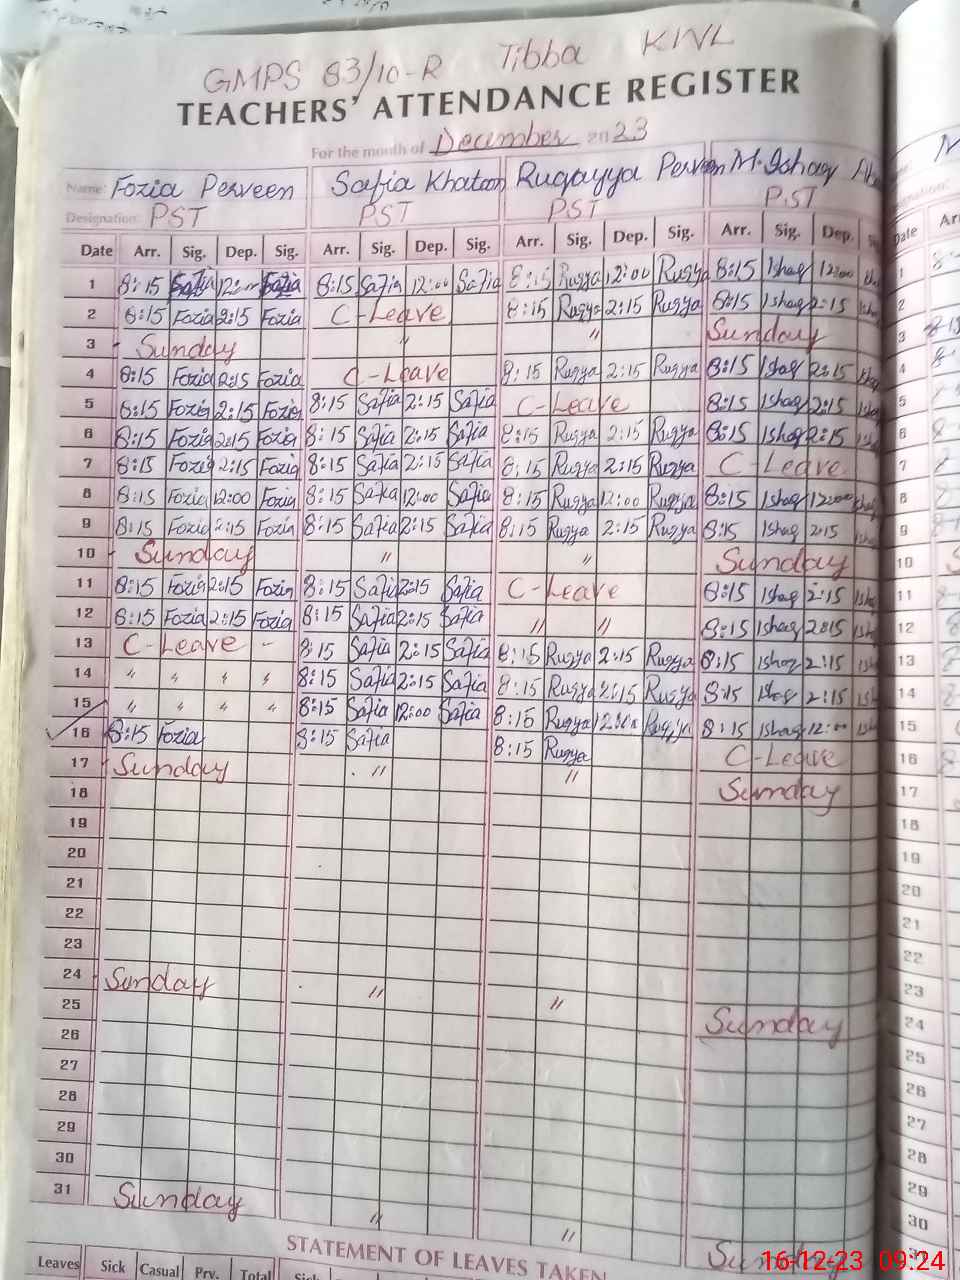 GMPS 83/10-R Tibba KWL
TEACHERS' ATTENDANCE REGISTER
For the month of December 2023
Name: Fozia Perveen Safia Khatoon Ruqayya Perveen M. Ishaq
Designation: PST PST PST P.ST
Date Arr. Sig. Dep. Sig. Arr. Sig. Dep. Sig. Arr. Sig. Dep. Sig. Arr. Sig. Dep.
1 8:15 12:00 8:15 Safia 12:00 Safia 8:15 Ruqya 12:00 Ruqya 8:15 Ishaq 12:00
2 8:15 Fozia 2:15 Fozia C-Leave 8:15 Ruqya 2:15 Ruqya 8:15 Ishaq 2:15
3 Sunday " " Sunday
4 8:15 Fozia 2:15 Fozia C-Leave 8:15 Ruqya 2:15 Ruqya 8:15 Ishaq 2:15
5 8:15 Fozia 2:15 Fozia 8:15 Safia 2:15 Safia C-Leave 8:15 Ishaq 2:15
6 8:15 Fozia 2:15 Fozia 8:15 Safia 2:15 Safia 8:15 Ruqya 2:15 Ruqya 8:15 Ishaq 2:15
7 8:15 Fozia 2:15 Fozia 8:15 Safia 2:15 Safia 8:15 Ruqya 2:15 Ruqya C-Leave
8 8:15 Fozia 12:00 Fozia 8:15 Safia 12:00 Safia 8:15 Ruqya 12:00 Ruqya 8:15 Ishaq 12:00
9 8:15 Fozia 2:15 Fozia 8:15 Safia 2:15 Safia 8:15 Ruqya 2:15 Ruqya 8:15 Ishaq 2:15
10 Sunday " " Sunday
11 8:15 Fozia 2:15 Fozia 8:15 Safia 2:15 Safia C-Leave 8:15 Ishaq 2:15
12 8:15 Fozia 2:15 Fozia 8:15 Safia 2:15 Safia " " 8:15 Ishaq 2:15
13 C-Leave - 8:15 Safia 2:15 Safia 8:15 Ruqya 2:15 Ruqya 8:15 Ishaq 2:15
14 " " " " 8:15 Safia 2:15 Safia 8:15 Ruqya 2:15 Ruqya 8:15 Ishaq 2:15
15 " " " " 8:15 Safia 12:00 Safia 8:15 Ruqya 12:00 Ruqya 8:15 Ishaq 12:00
16 8:15 Fozia 8:15 Safia 8:15 Ruqya C-Leave
17 Sunday " " Sunday
18
19
20
21
22
23
24 Sunday " " Sunday
25
26
27
28
29
30
31 Sunday " "
STATEMENT OF LEAVES TAKEN
Leaves Sick Casual Prv. Total Sick
16-12-23 09:24